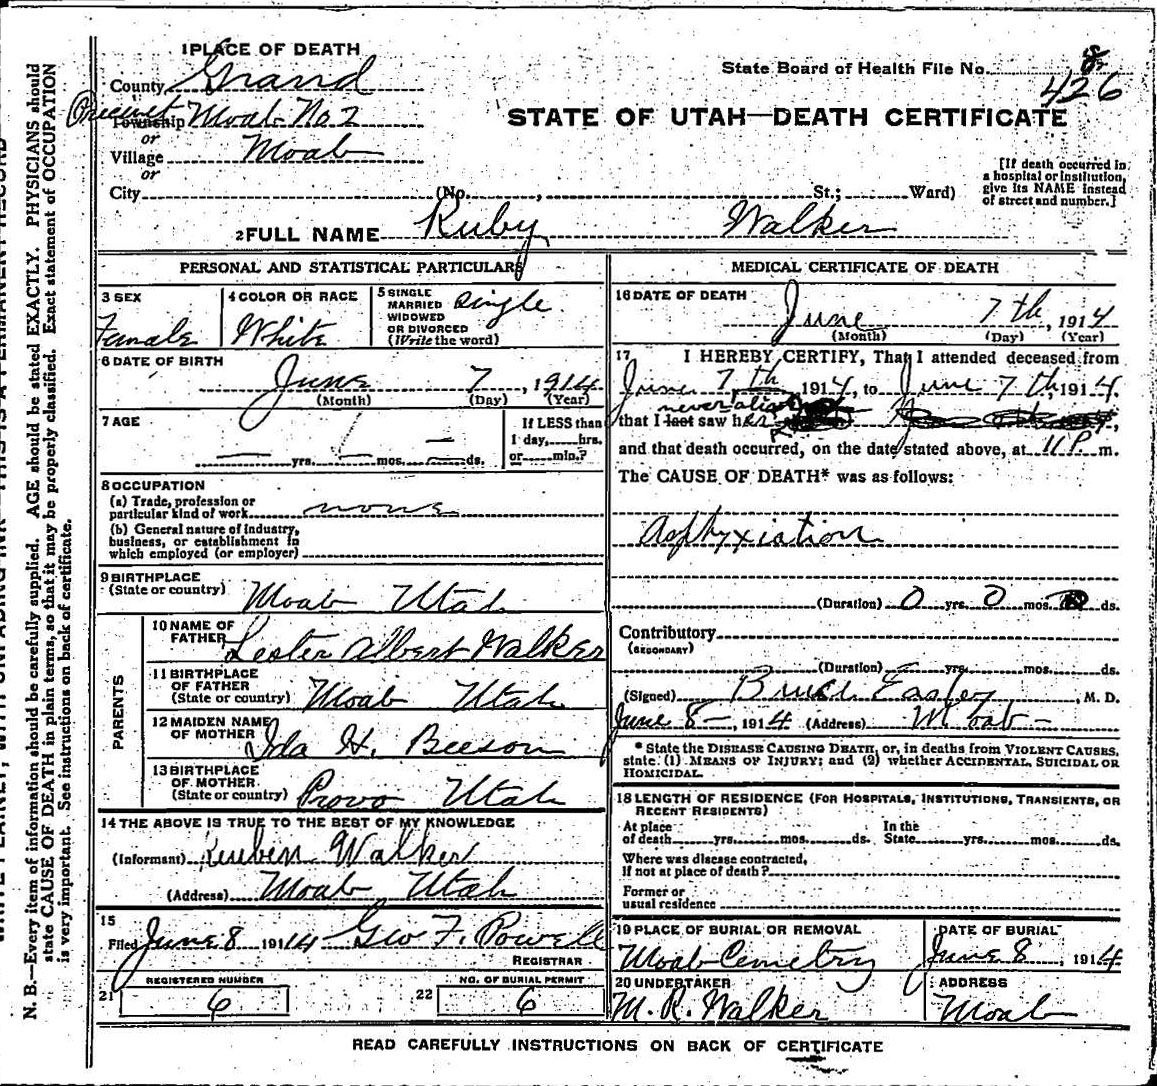 1 PLACE OF DEATH
County Grand
State Board of Health File No. 8
426
Precinct Township Moab No 2
STATE OF UTAH—DEATH CERTIFICATE
or
Village Moab
or
City (No. , St.; Ward)
[If death occurred in a hospital or institution, give its NAME instead of street and number.]
2 FULL NAME Ruby Walker
PERSONAL AND STATISTICAL PARTICULARS
3 SEX
Female
4 COLOR OR RACE
White
5 SINGLE
MARRIED
WIDOWED
OR DIVORCED
(Write the word)
Single
6 DATE OF BIRTH
June 7, 1914
(Month) (Day) (Year)
7 AGE
— yrs. — mos. — ds.
If LESS than
1 day, hrs.
or min.?
8 OCCUPATION
(a) Trade, profession or
particular kind of work none
(b) General nature of industry,
business, or establishment in
which employed (or employer)
9 BIRTHPLACE
(State or country) Moab Utah
PARENTS
10 NAME OF
FATHER Lester Albert Walker
11 BIRTHPLACE
OF FATHER
(State or country) Moab Utah
12 MAIDEN NAME
OF MOTHER Ida H. Beeson
13 BIRTHPLACE
OF MOTHER
(State or country) Provo Utah
14 THE ABOVE IS TRUE TO THE BEST OF MY KNOWLEDGE
(Informant) Reuben Walker
(Address) Moab Utah
15
Filed June 8 1914 Geo F. Powell
REGISTRAR
REGISTERED NUMBER
21 6
NO. OF BURIAL PERMIT
22 6
MEDICAL CERTIFICATE OF DEATH
16 DATE OF DEATH
June 7th, 1914
(Month) (Day) (Year)
17 I HEREBY CERTIFY, That I attended deceased from
June 7th 1914, to June 7th, 1914.
never alive
that I last saw her
and that death occurred, on the date stated above, at 11 P. m.
The CAUSE OF DEATH* was as follows:
Asphyxiation
(Duration) 0 yrs. 0 mos. ds.
Contributory
(SECONDARY)
(Duration) yrs. mos. ds.
(Signed) Bruce Easley, M. D.
June 8—, 1914 (Address) Moab—
* State the DISEASE CAUSING DEATH, or, in deaths from VIOLENT CAUSES,
state (1) MEANS OF INJURY; and (2) whether ACCIDENTAL, SUICIDAL OR
HOMICIDAL.
18 LENGTH OF RESIDENCE (FOR HOSPITALS, INSTITUTIONS, TRANSIENTS, OR
RECENT RESIDENTS)
At place
of death yrs. mos. ds.
In the
State yrs. mos. ds.
Where was disease contracted,
if not at place of death?
Former or
usual residence
19 PLACE OF BURIAL OR REMOVAL
Moab Cemetry
DATE OF BURIAL
June 8, 1914
20 UNDERTAKER
M. R. Walker
ADDRESS
Moab
READ CAREFULLY INSTRUCTIONS ON BACK OF CERTIFICATE
N. B.—Every item of information should be carefully supplied. AGE should be stated EXACTLY. PHYSICIANS should
state CAUSE OF DEATH in plain terms, so that it may be properly classified. Exact statement of OCCUPATION
is very important. See instructions on back of certificate.